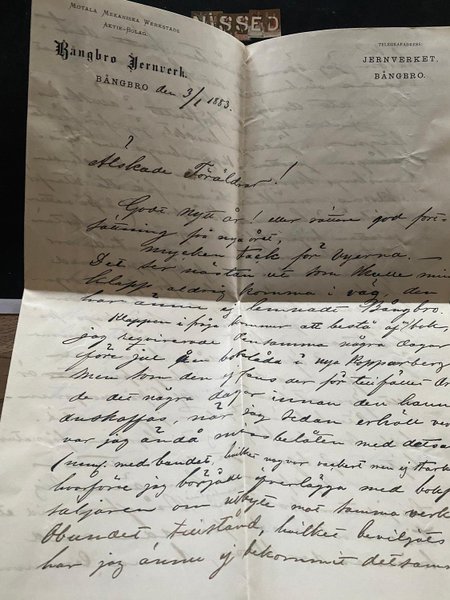 MOTALA MEKANISKA WERKSTADS
AKTIE-BOLAG.
Bångbro Jernverk.
BÅNGBRO den 3/1 1883.
TELEGRAFADRESS:
JERNVERKET.
BÅNGBRO.
NISSED
Älskade Föräldrar!
Godt nytt år! eller rättare god fort-
sättning på nya året,
mycken tack för vyerna. —
Det ser nästan ut som skulle min
klapp aldrig komma i väg, den
har ännu ej lemnade Bångbro.
Klappen i fråga kommer att bestå af bok,
jag requirerade densamma några dagar
före jul från boklåda i nya Kopparberg
men som den ej fans der för tillfället dr
de det några dagar innan den hann
anskaffas, när jag sedan erhöll
var jag ändå missbelåten med
med bandet, hvilket var vackert men ej stark
hvarföre jag började öfverlägga med bok
saljaren om utbyte mot samma verk
Obundet tillstånd, hvilket beviljats
har jag ännu ej bekommit detsam